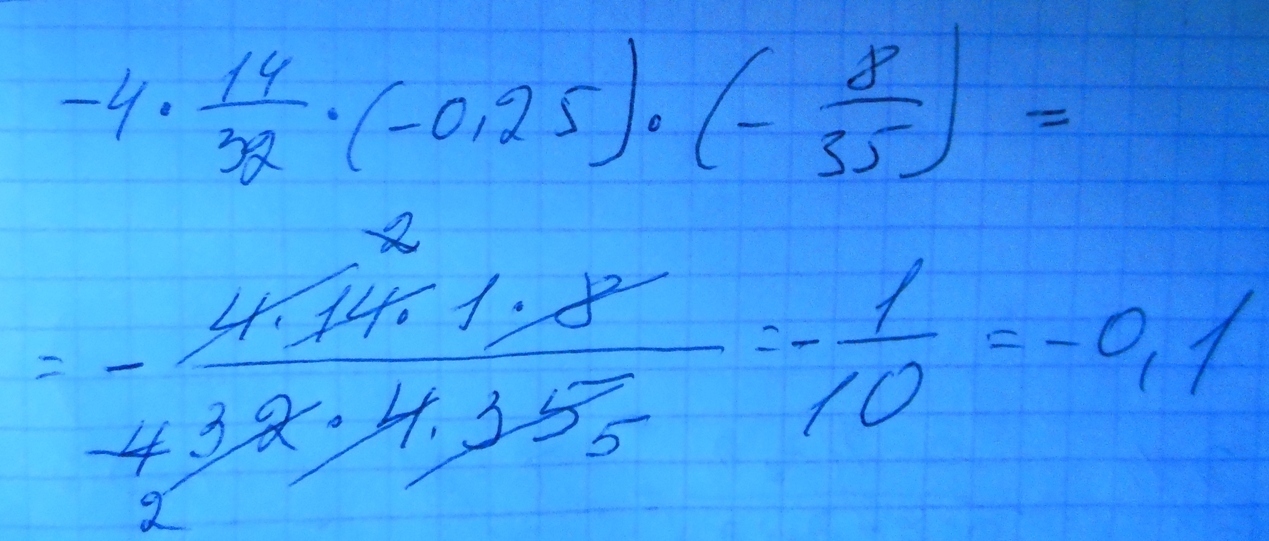 -4 · 14/32 · (-0,25) · (- 8/35) =
2
= - 4 · 14 · 1 · 8 / 32 · 4 · 35 = - 1/10 = -0,1
4 5
2